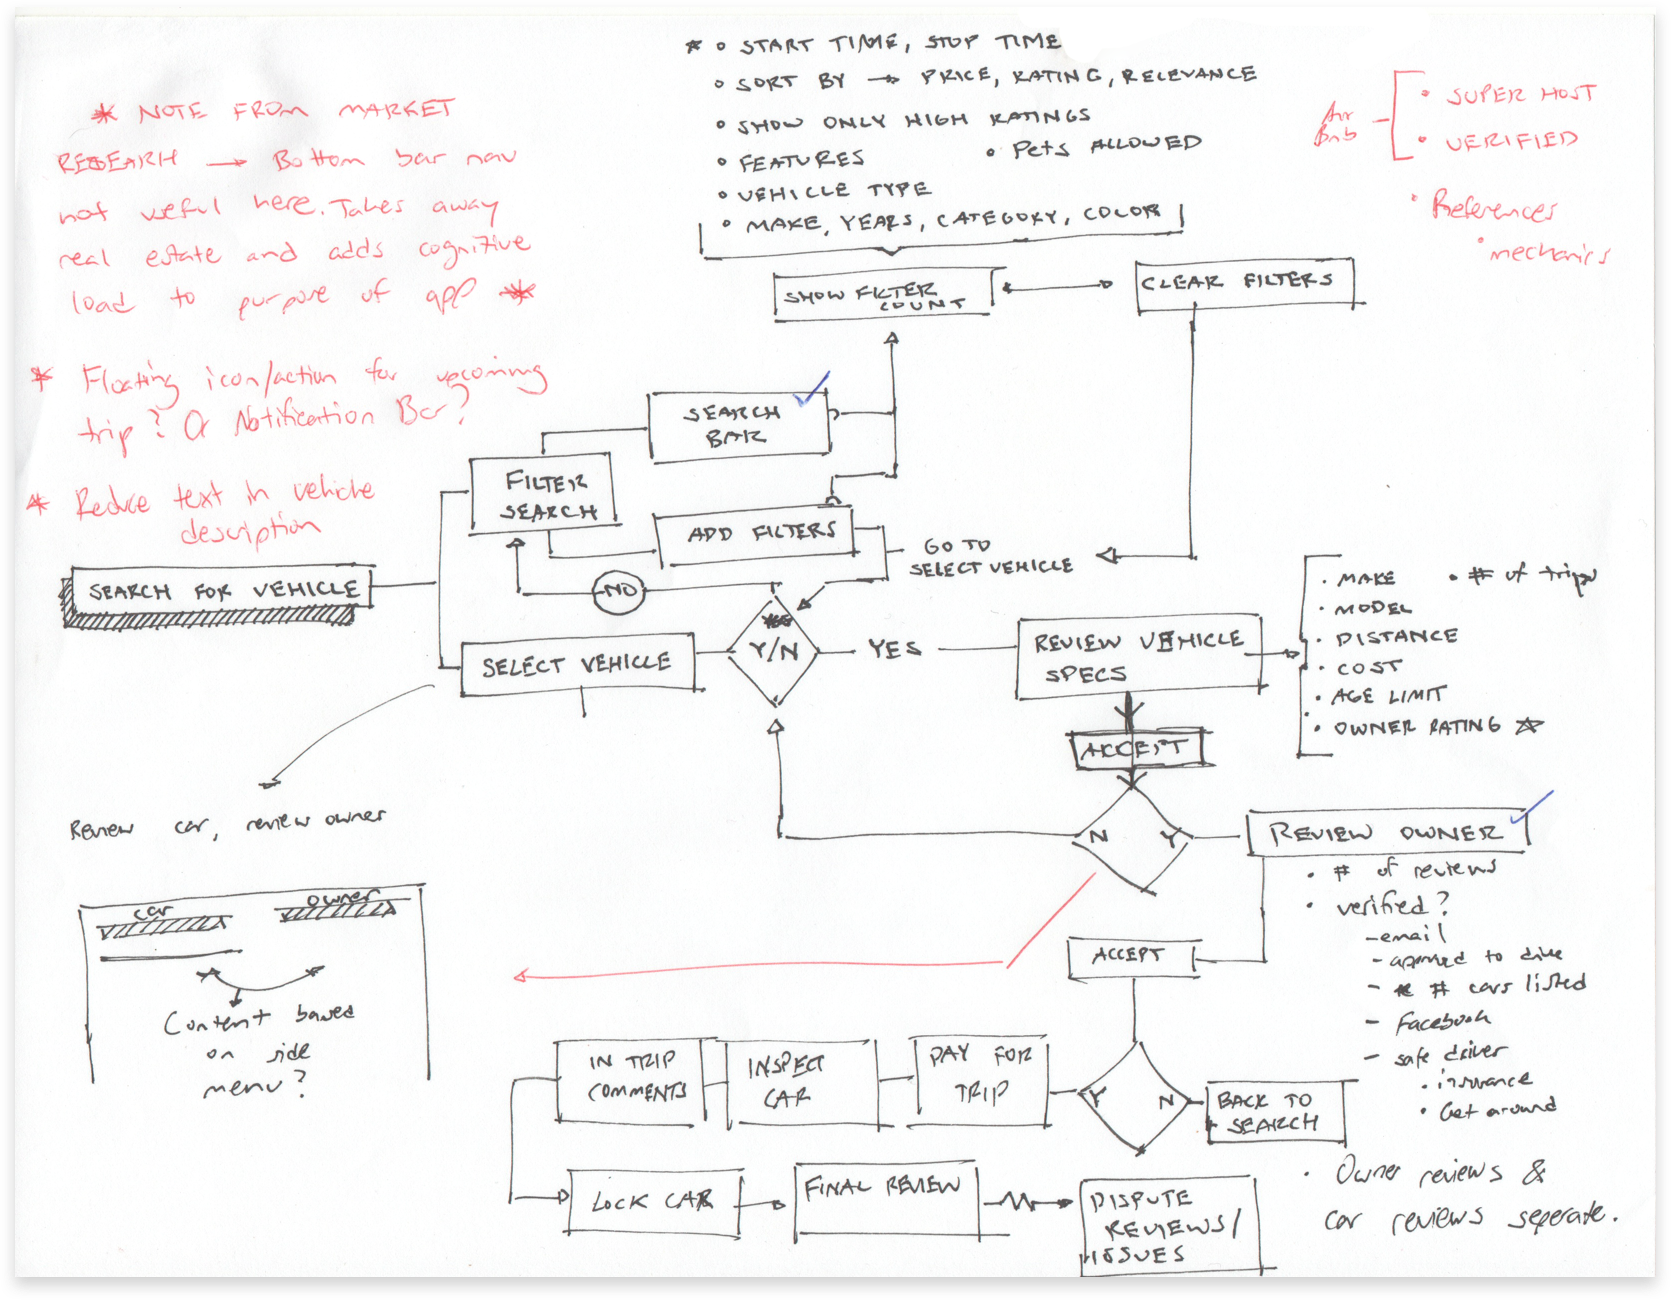 * NOTE FROM MARKET
RESEARH → Bottom bar nav
not useful here. Takes away
real estate and adds cognitive
load to purpose of app *
* Floating icon/action for upcoming
trip? Or Notification Bar?
* Reduce text in vehicle
description
* ∘ START TIME, STOP TIME
∘ SORT BY → PRICE, RATING, RELEVANCE
∘ SHOW ONLY HIGH RATINGS
∘ FEATURES
• Pets ALLOWED
∘ VEHICLE TYPE
∘ MAKE, YEARS, CATEGORY, COLOR
Air
Bnb
• SUPER HOST
• VERIFIED
• References
• mechanics
SHOW FILTER
COUNT
CLEAR FILTERS
SEARCH
BAR
FILTER
SEARCH
ADD FILTERS
GO TO
SELECT VEHICLE
SEARCH FOR VEHICLE
NO
SELECT VEHICLE
Y/N
YES
REVIEW VEHICLE
SPECS
• MAKE
• # of trips
• MODEL
• DISTANCE
• COST
• AGE LIMIT
• OWNER RATING ☆
ACCEPT
N Y
REVIEW OWNER
• # of reviews
• verified?
- email
- approved to drive
- # cars listed
- Facebook
- safe driver
• insurance
• Get around
• Owner reviews &
car reviews seperate.
Review car, review owner
car
owner
Content based
on side
menu?
ACCEPT
Y N
BACK TO
SEARCH
PAY FOR
TRIP
INSPECT
CAR
IN TRIP
COMMENTS
LOCK CAR
FINAL REVIEW
DISPUTE
REVIEWS/
ISSUES